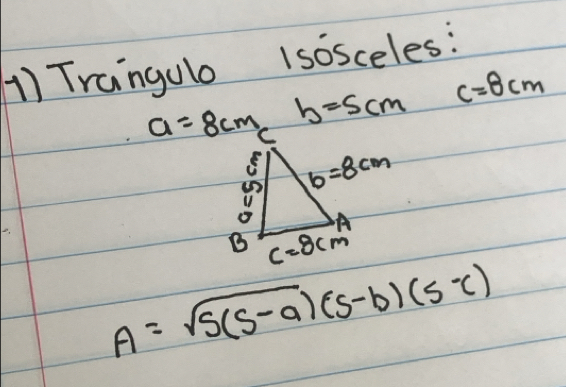 1) Traíngulo Isósceles:
a=8cm b=5cm c=8cm
C
a=5cm b=8cm
B A
c=8cm
A = √s(s-a)(s-b)(s-c)